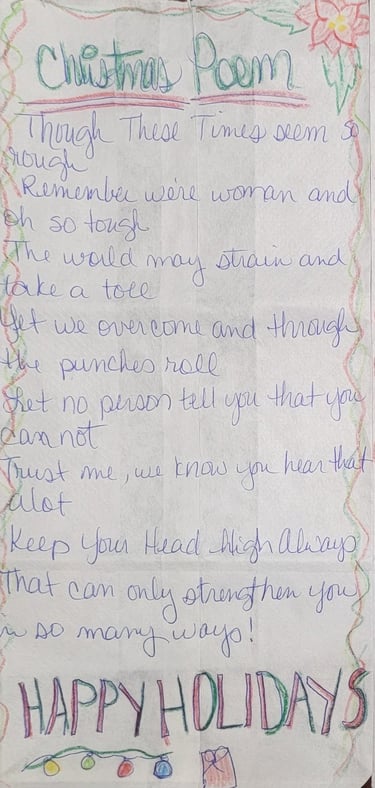 Christmas Poem
Though These Times seem so
rough
Remember we're woman and
Oh so tough
The world may strain and
take a toll
Yet we overcome and through
the punches roll
Let no person tell you that you
can not
Trust me, we know you hear that
alot
Keep Your Head High Always
That can only strengthen you
in so many ways!
HAPPY HOLIDAYS